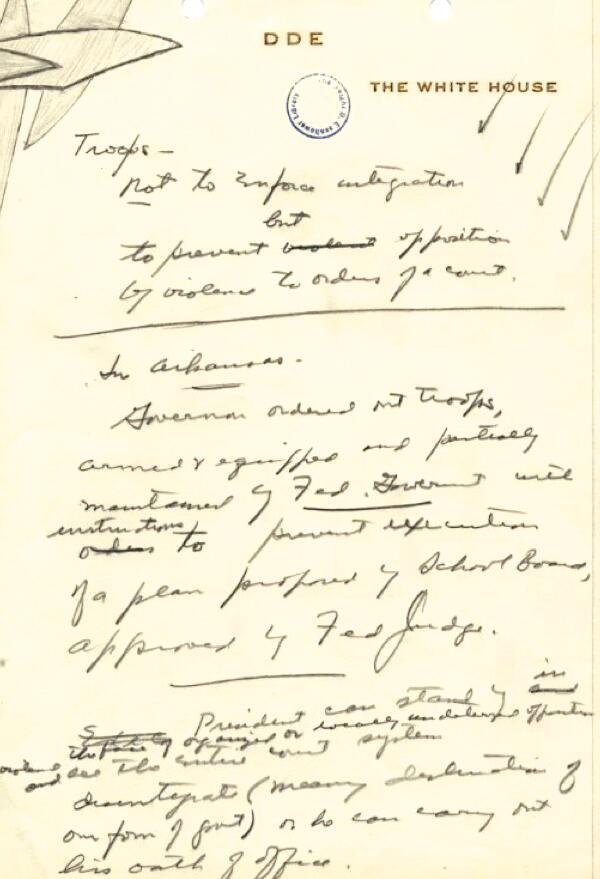 DDE
THE WHITE HOUSE
The Dwight D. Eisenhower Library
Troops—
Not to Enforce integration
but
to prevent violent opposition
by violence to orders of a court.
In Arkansas.
Governor ordered out troops,
armed & equipped and partially
maintained by Fed. Goverment with
instructions
orders to prevent execution
of a plan proposed by School Board,
approved by Fed Judge.
in
President can stand by and
the face of organized or locally undeterred opposition
violence
and see the entire court system
disintegrate (meaning destruction of
our form of govt) or he can carry out
his oath of office.